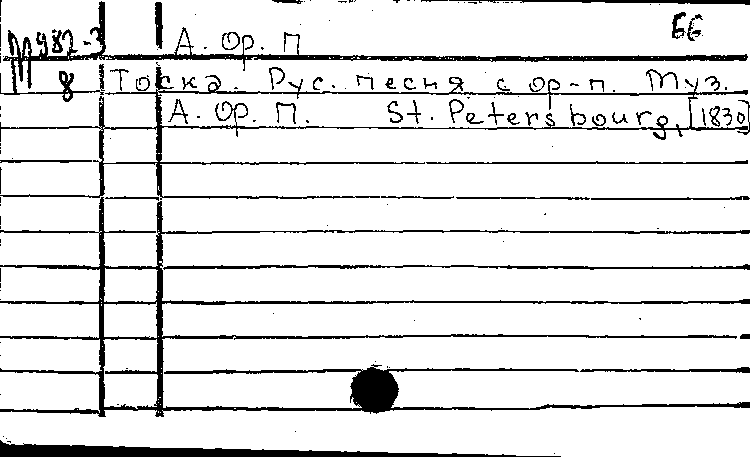 М 982-3 А. ор. П ББ
8 Тоска. Рус. песня с ор-п. Муз.
А. ор. П. St. Petersbourg, [1830]